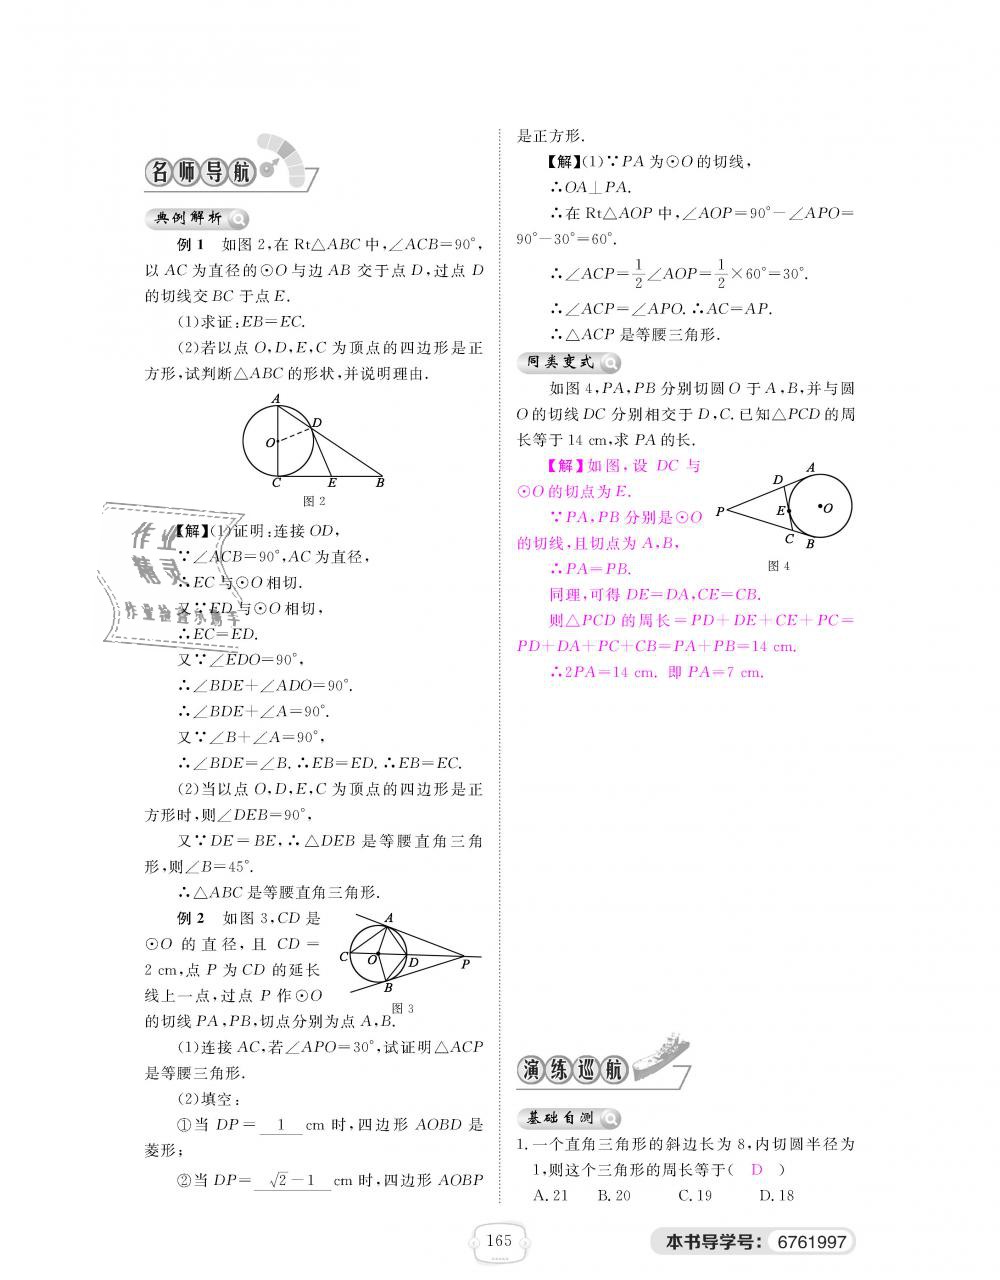 名师导航
典例解析
例1 如图2,在Rt△ABC中,∠ACB=90°,
以AC为直径的⊙O与边AB交于点D,过点D
的切线交BC于点E.
(1)求证:EB=EC.
(2)若以点O,D,E,C为顶点的四边形是正
方形,试判断△ABC的形状,并说明理由.
A
D
O
C E B
图2
【解】(1)证明:连接OD,
∵∠ACB=90°,AC为直径,
∴EC与⊙O相切.
又∵ED与⊙O相切,
∴EC=ED.
又∵∠EDO=90°,
∴∠BDE+∠ADO=90°.
∴∠BDE+∠A=90°.
又∵∠B+∠A=90°,
∴∠BDE=∠B.∴EB=ED.∴EB=EC.
(2)当以点O,D,E,C为顶点的四边形是正
方形时,则∠DEB=90°,
又∵DE=BE,∴△DEB是等腰直角三角
形,则∠B=45°.
∴△ABC是等腰直角三角形.
例2 如图3,CD是
⊙O的直径,且CD=
2 cm,点P为CD的延长
线上一点,过点P作⊙O
的切线PA,PB,切点分别为点A,B.
A
C O D P
B
图3
(1)连接AC,若∠APO=30°,试证明△ACP
是等腰三角形.
(2)填空:
①当DP=1 cm时,四边形AOBD是
菱形;
②当DP=√2-1 cm时,四边形AOBP
作业
精灵
是正方形.
【解】(1)∵PA为⊙O的切线,
∴OA⊥PA.
∴在Rt△AOP中,∠AOP=90°-∠APO=
90°-30°=60°.
∴∠ACP=1/2∠AOP=1/2×60°=30°.
∴∠ACP=∠APO.∴AC=AP.
∴△ACP是等腰三角形.
同类变式
如图4,PA,PB分别切圆O于A,B,并与圆
O的切线DC分别相交于D,C.已知△PCD的周
长等于14 cm,求PA的长.
【解】如图,设DC与
⊙O的切点为E.
∵PA,PB分别是⊙O
的切线,且切点为A,B,
∴PA=PB.
A
D
P E O
C B
图4
同理,可得DE=DA,CE=CB.
则△PCD的周长=PD+DE+CE+PC=
PD+DA+PC+CB=PA+PB=14 cm.
∴2PA=14 cm. 即PA=7 cm.
演练巡航
基础自测
1.一个直角三角形的斜边长为8,内切圆半径为
1,则这个三角形的周长等于( D )
A.21 B.20 C.19 D.18
165
本书导学号: 6761997